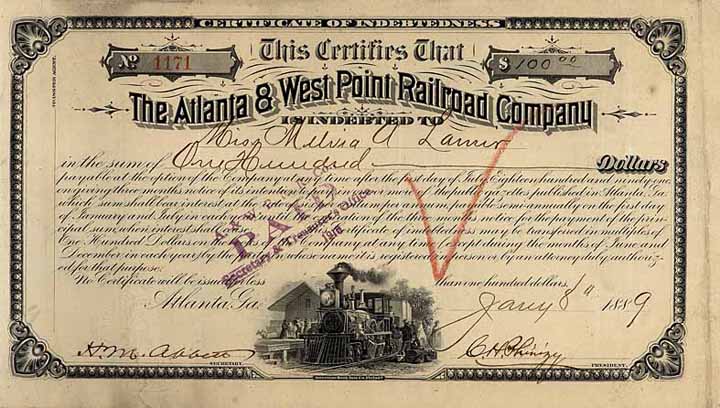 CERTIFICATE OF INDEBTEDNESS
TRANSFER AGENT.
This Certifies That
No 1171
$ 100.00
The Atlanta & West Point Railroad Company
IS INDEBTED TO
Miss A Lanier
in the sum of One Hundred Dollars
payable at the option of the Company at any time after the first day of July Eighteen hundred and ninety one,
on giving three months notice of its intention in one or more of the public gazettes published in Atlanta, Ga
which sum shall bear interest at the rate of six per cent per annum payable semi-annually on the first day
of January and July in each year until the expiration of the three months notice for the payment of the prin-
cipal sum, when interest shall cease. Certificate of indebtedness may be transferred in multiples of
One Hundred Dollars on the books of the Company at any time except during the months of June and
December in each year, by the person in whose name it is registered in person or by an attorney duly authoriz-
ed for that purpose.
A. & W. P. R. R. Co.
PAID
Secretary & Treasurer's Office
1916
No Certificate will be issued for less than one hundred dollars.
Atlanta, Ga. Jany 8th 1889
H.M. Abbett
SECRETARY.
C.H. Phinizy
PRESIDENT.